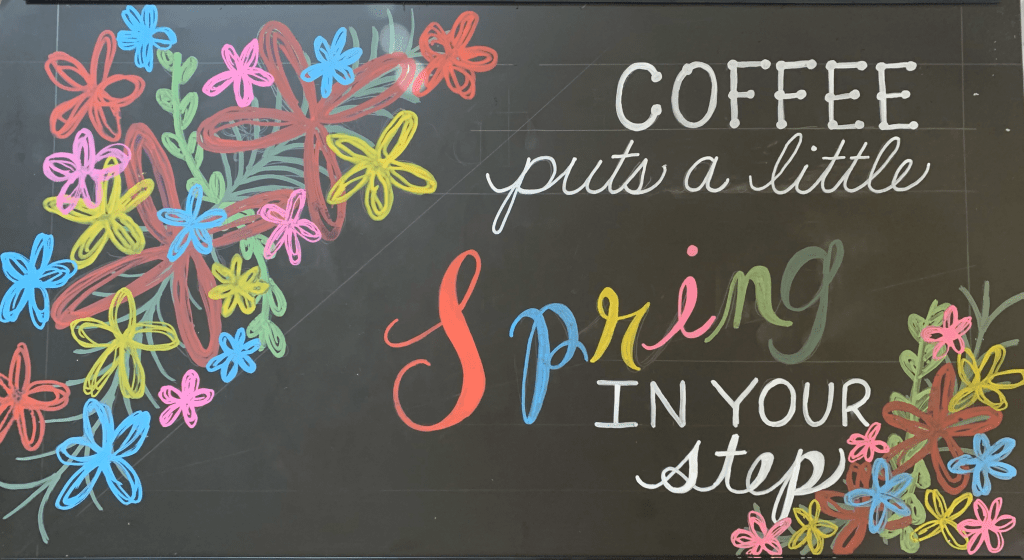 COFFEE
puts a little
Spring
IN YOUR
step